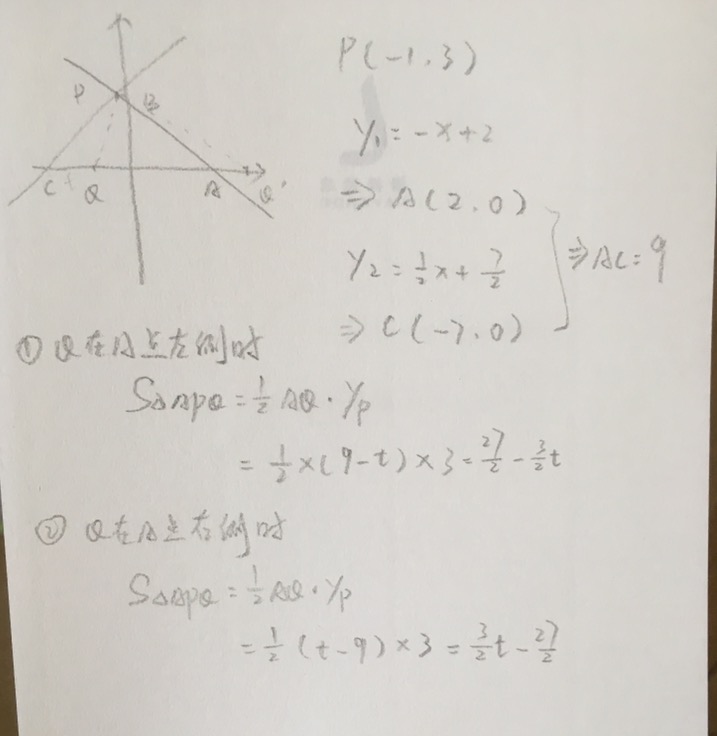 P B
C Q A Q'
P(-1,3)
y₁=-x+2
⇒A(2,0)
y₂=½x+7/2 ⇒AC=9
⇒C(-7,0)
①Q在A点左侧时
S△APQ=½AQ·yP
=½×(9-t)×3=27/2-3/2t
②Q在A点右侧时
S△APQ=½AQ·yP
=½(t-9)×3=3/2t-27/2